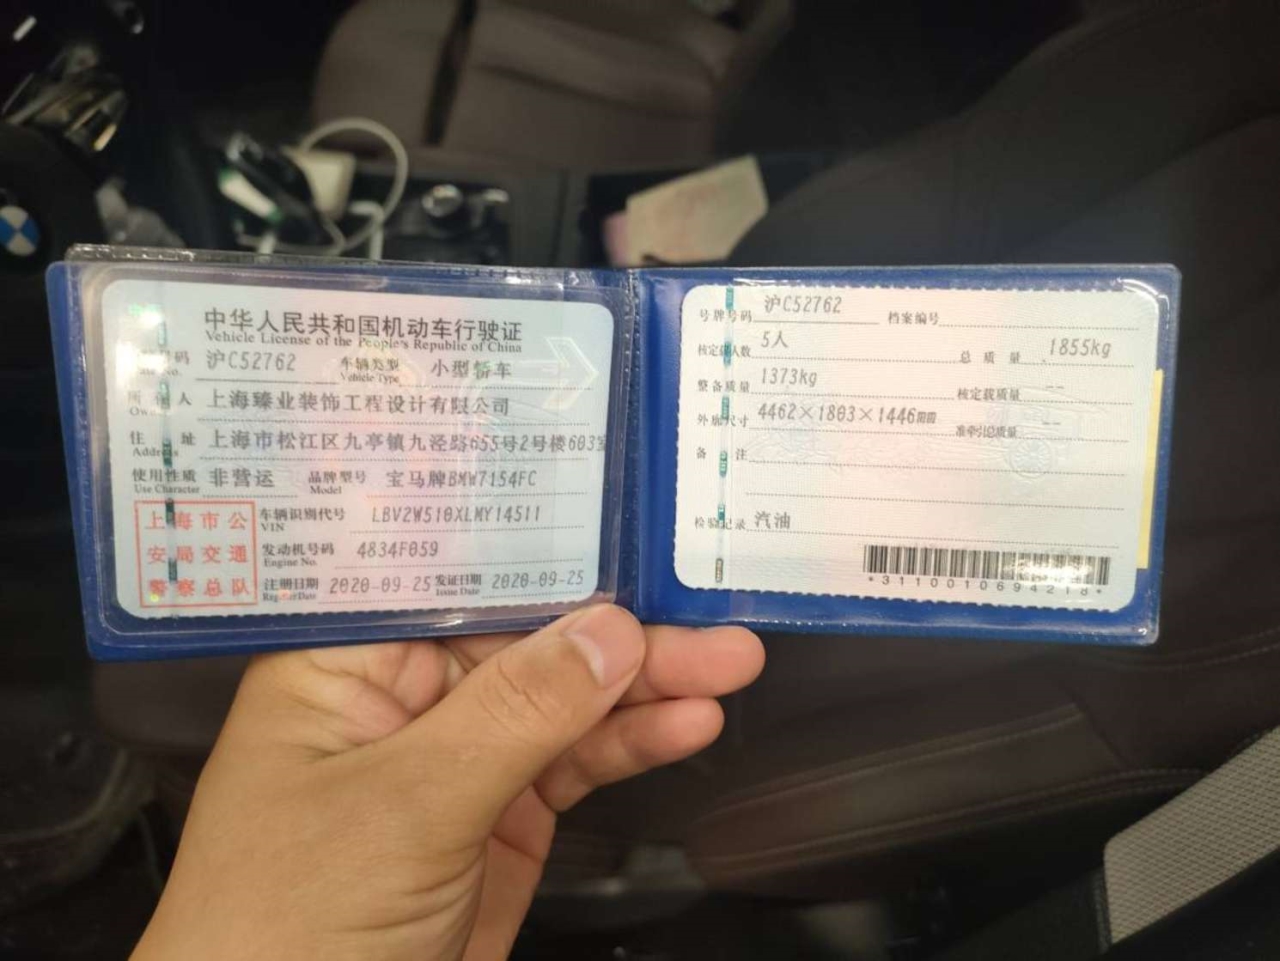 中华人民共和国机动车行驶证
Vehicle License of the People's Republic of China
号码 沪C52762 车辆类型 小型轿车
Plate No. Vehicle Type
所有人 上海臻业装饰工程设计有限公司
Owner
住址 上海市松江区九亭镇九泾路655号2号楼603室
Address
使用性质 非营运 品牌型号 宝马牌BMW7154FC
Use Character Model
上海市公安局交通警察总队
车辆识别代号 LBV2W510XLMY14511
VIN
发动机号码 4834F059
Engine No.
注册日期 2020-09-25 发证日期 2020-09-25
Register Date Issue Date
号牌号码 沪C52762 档案编号
核定载人数 5人 总质量 1855kg
整备质量 1373kg 核定载质量 --
外廓尺寸 4462×1803×1446mm 准牵引总质量 --
备注
检验记录 汽油
*3110010694218*